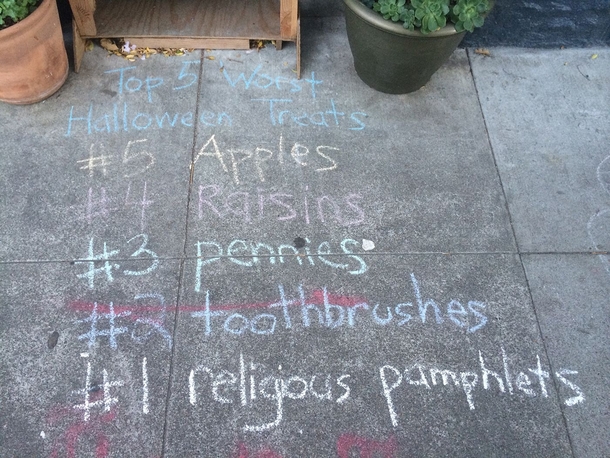 Top 5 Worst
Halloween Treats
#5 Apples
#4 Raisins
#3 pennies
#2 toothbrushes
#1 religious pamphlets